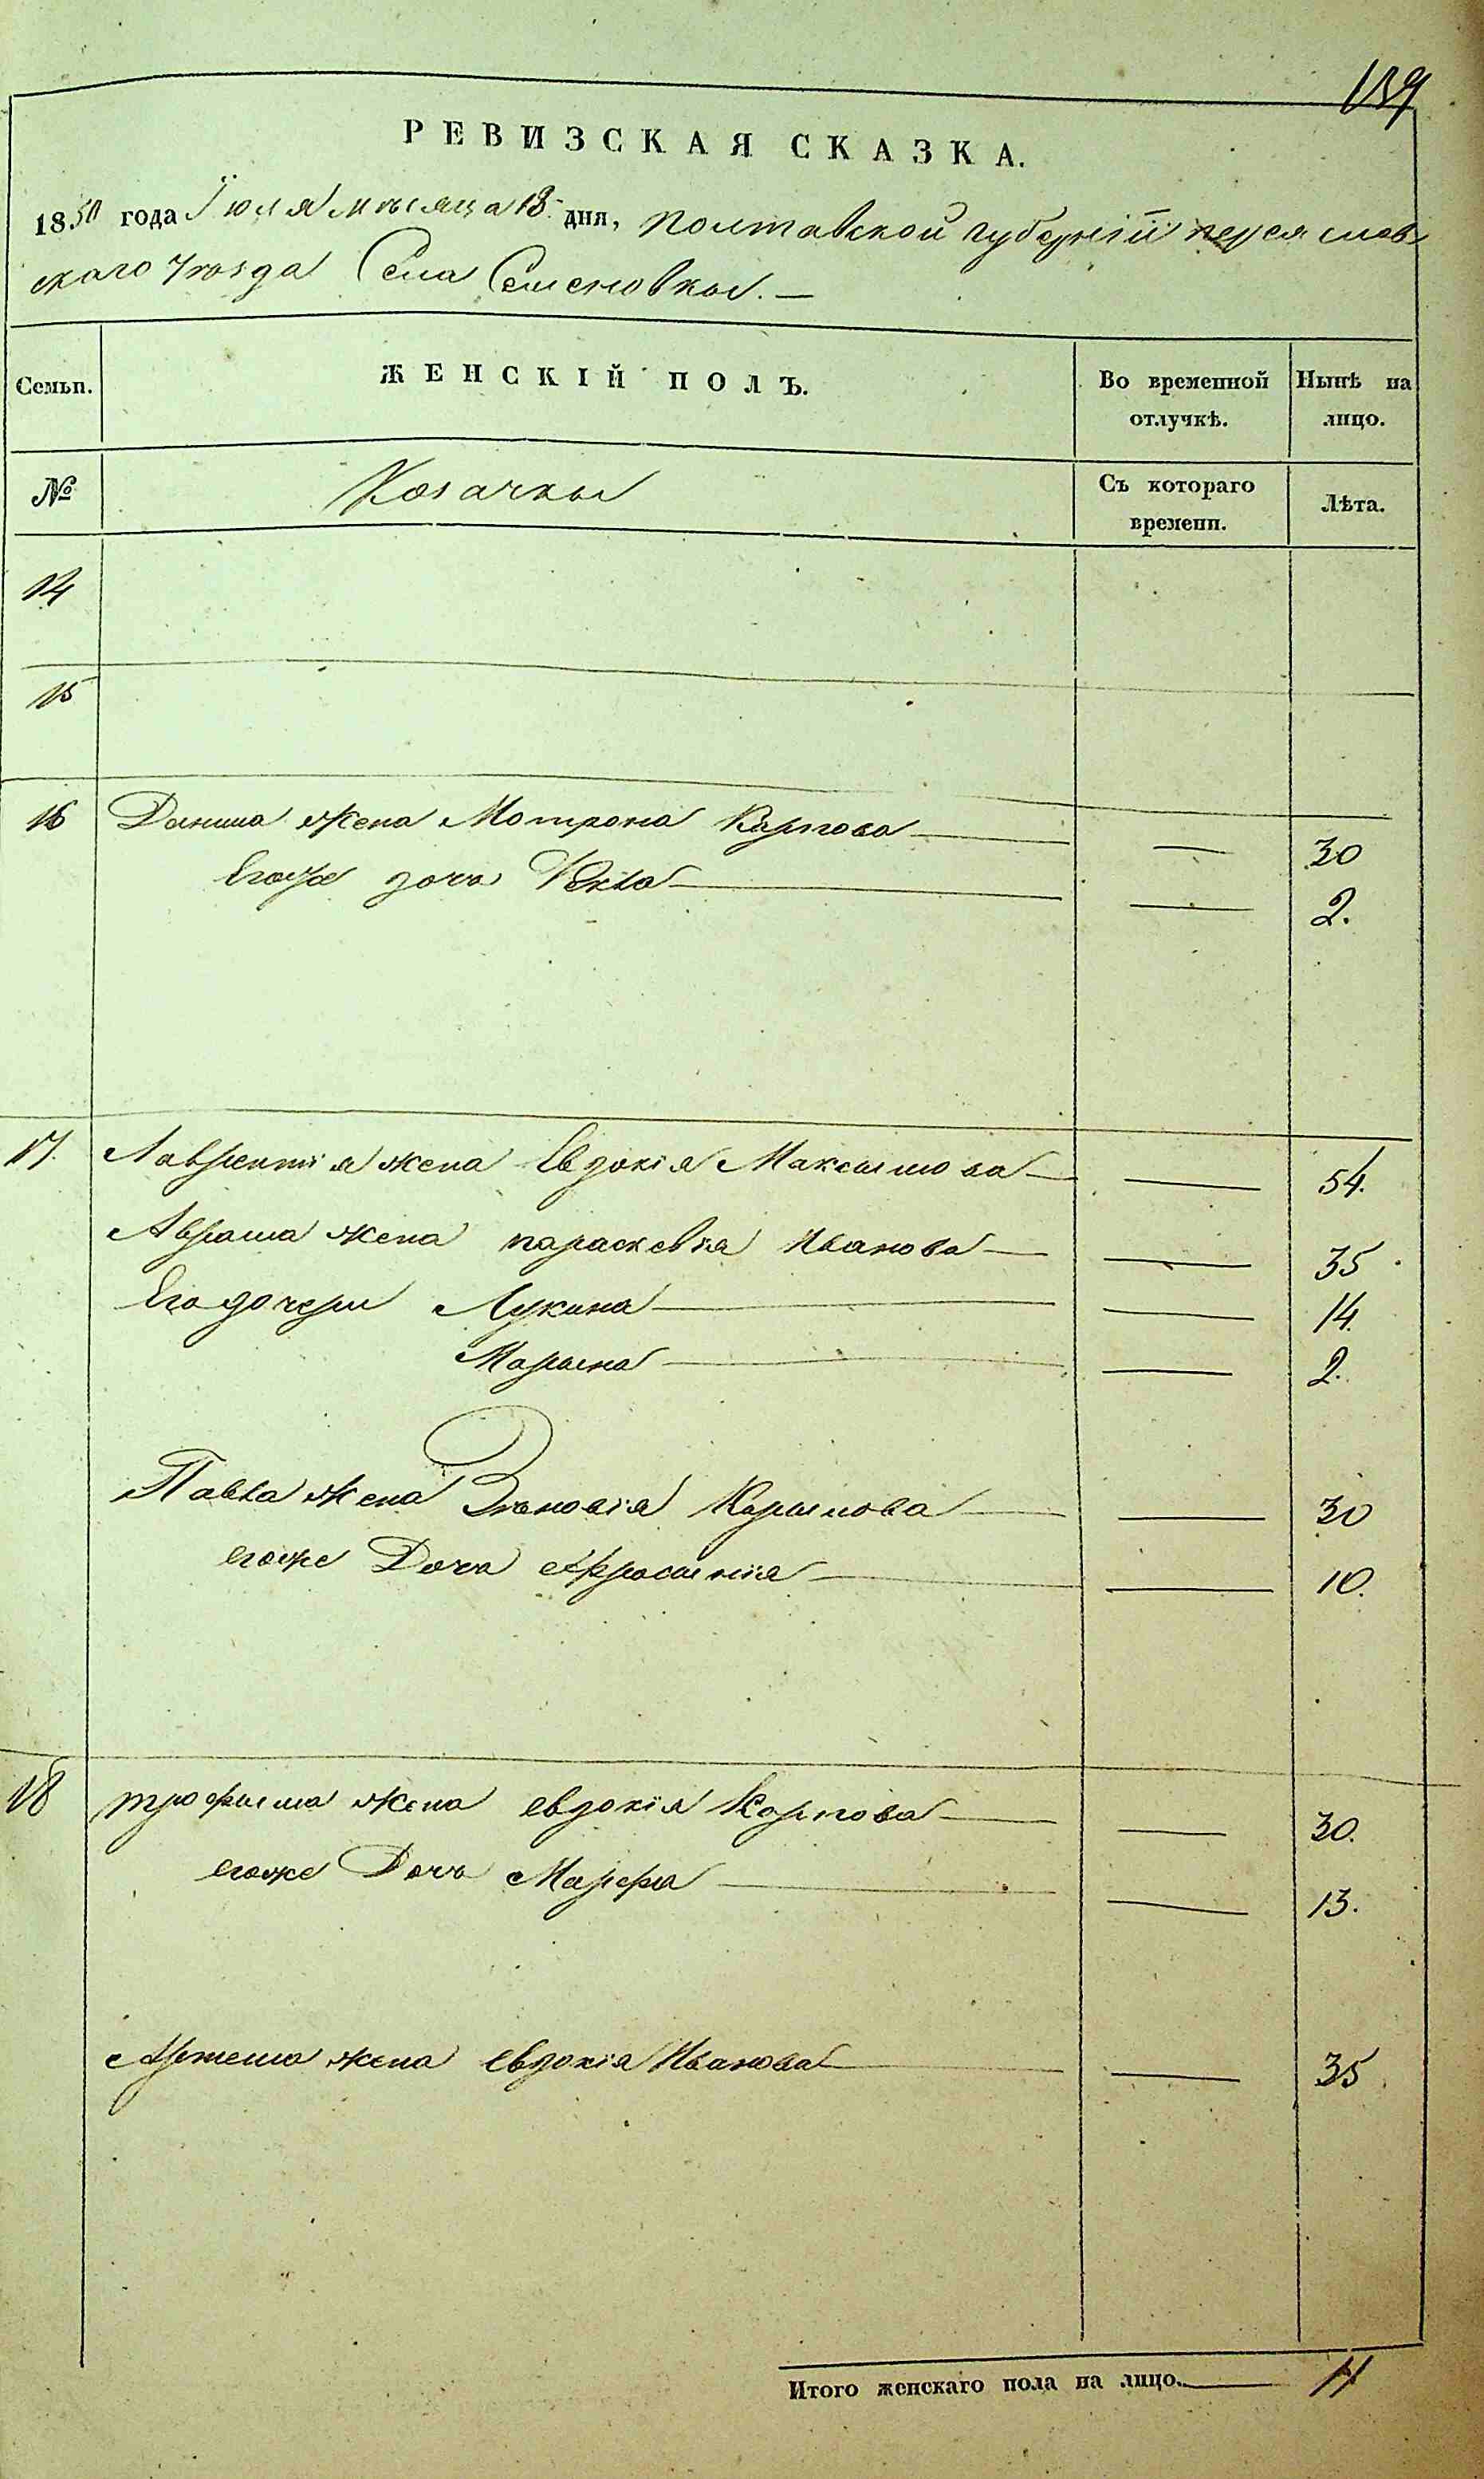 139
РЕВИЗСКАЯ СКАЗКА.
1850 года Іюля мѣсяца 18 дня, Полтавской губерніи переяслав
скаго уѣзда Села Семеновкы. —
Семьи. ЖЕНСКІЙ ПОЛЪ. Во временной отлучкѣ. Нынѣ на лицо.
№ Козачкы Съ котораго времени. Лѣта.
14
15
16 Данила жена Мотрона Карпова — — 30
Егоже дочь — — 2.
17. Лаврентія жена Евдокія Максимова — — 54.
Аврама жена параскевія Иванова — — 35
Его дочери Лукина — — 14.
Марина — — 2.
Павла жена Зѣновія — — 30
егоже Дочь Афросинія — — 10.
18 трофима жена евдокія Карпова — — 30.
егоже Дочь Марфа — — 13.
Артема жена евдокія Иванова — — 35
Итого женскаго пола на лицо. — 11